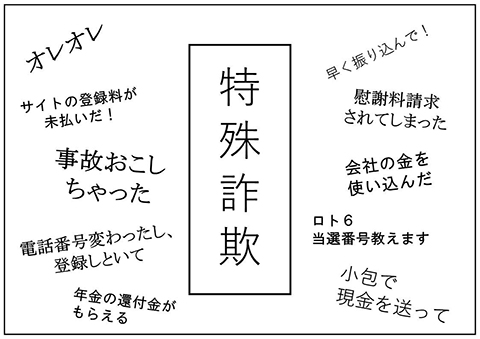 オレオレ
サイトの登録料が
未払いだ！
事故おこし
ちゃった
電話番号変わったし、
登録しといて
年金の還付金が
もらえる
特殊詐欺
早く振り込んで！
慰謝料請求
されてしまった
会社の金を
使い込んだ
ロト６
当選番号教えます
小包で
現金を送って